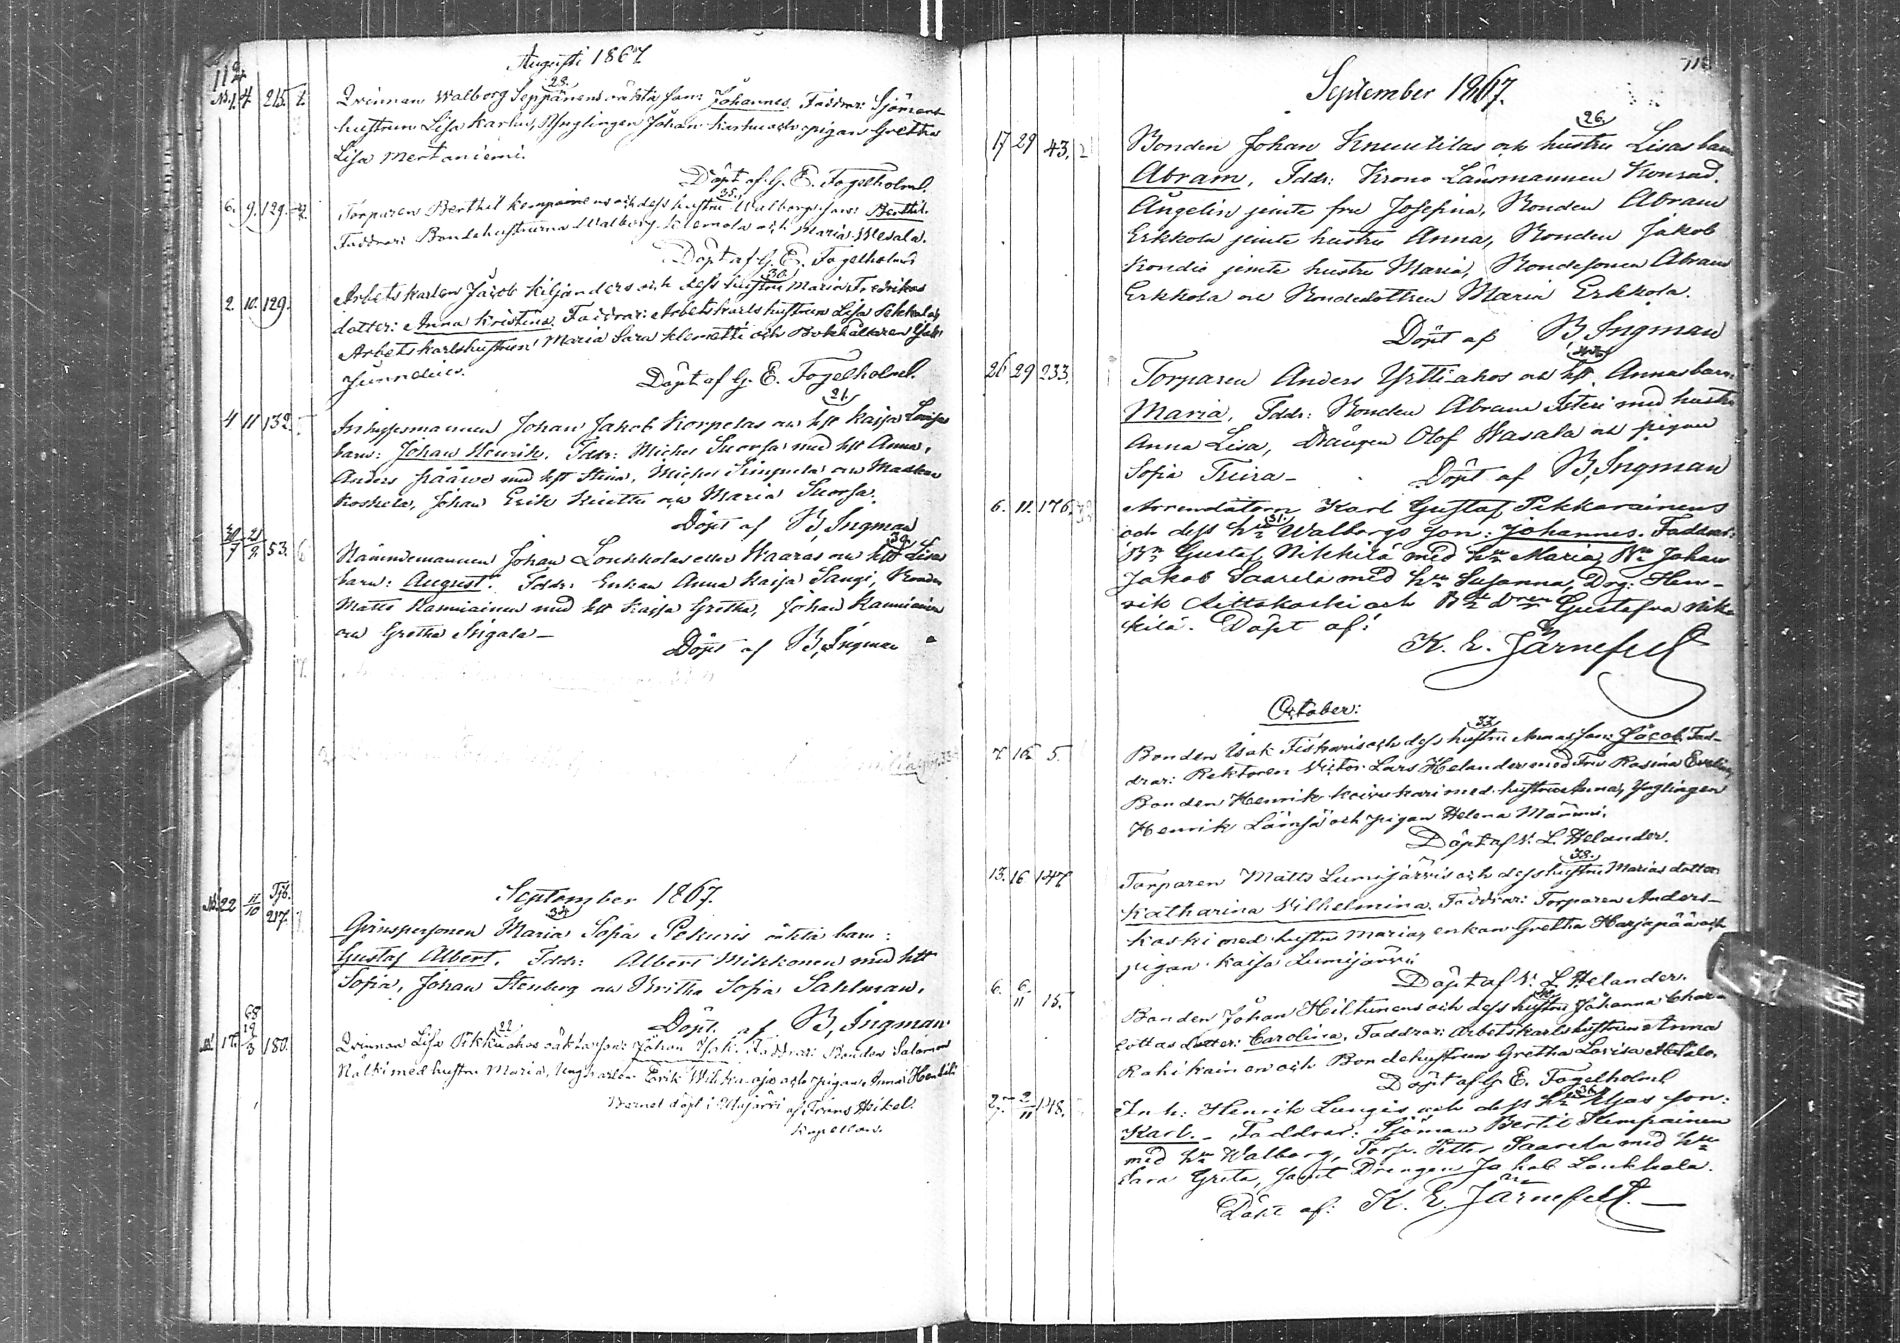 114
Augusti 1867.
23.
N. 1. 4. 215. Qvinnan Walborg Seppänens oäkta son: Johannes. Faddrar: Sjömans
hustrun Lisa Karhu, Ynglingen Johan Karhu och pigan Gretha
Lisa Mertaniemi.
Döpt af G. E. Fogelholm.
35.
6. 9. 129. Torparen Berthil Kempainens och dess hustru Walborgs son: Berthil.
Faddrar: Bondehustrurna Walborg Klemola och Maria Wesala.
Döpt af G. E. Fogelholm
30.
2. 10. 129. Arbetskarlen Jacob Kiljanders och dess hustru Maria Fredrikas
dotter: Anna Kristina. Faddrar: Arbetskarls hustrun Lisa Pekkala,
Arbetskarlshustrun Maria Sara Klemetti och Bokhållaren
Junnelius.
Döpt af G. E. Fogelholm.
21.
4 11 132. Inhysesmannen Johan Jakob Korpelas och hst Kaisa Lovisa
barn: Johan Henrik. Fddr: Michel Suorsa med hst Anna,
Anders Pääwo med hst Stina, Michel Simpura och
Koskela, Johan Erik och Maria Suorsa.
Döpt af B. Ingman
39.
30/7 21/8 53. Nämndemannen Johan Loukkolas eller Waaras och hst Lisas
barn: August. Fddr: Enkan Anna Kaisa Sangi, Bonden
Matts Kamiainen med hst Kaisa Gretha, Johan Kamiainen
och Gretha Ingala –
Döpt af B. Ingman
September 1867.
34.
N. 22 11/10 217. Gåinspersonen Maria Sofia Pekuris oäkta barn:
Gustaf Albert. Fddr: Albert Mikkonen med hst
Sofia, Johan Stenberg och Britha Sofia Sahlman.
Döpt af B. Ingman
22.
17. 180. Qvinnan Lisa Pikkuahos oäkta son: Johan Isak. Faddrar: Bonden Salomon
Nälki med hustru Maria, Ungkarlen Erik och pigan Anna
Barnet döpt i Utajärvi af Frans Wikel.
Kapellan.
115
September 1867.
26.
17 29 43. Bonden Johan Knuutilas och hustru Lisas barn
Abram, Fddr: Krono Länsmannen Konrad
Ångelin jemte fru Josefina, Bonden Abram
Erkkola jemte hustru Anna, Bonden Jakob
Kondio jemte hustru Maria, Bondesonen Abram
Erkkola och Bondedottren Maria Erkkola.
Döpt af B. Ingman
26 29 233. Torparen Anders Yrttiahos och hst Annas barn:
Maria, Fddr: Bonden Abram med hustru
Anna Lisa, Drängen Olof Wasala och pigan
Sofia Tuira –
Döpt af B. Ingman
31.
6. 11. 176. Arrendatorn Karl Gustaf Pekkarainens
och dess hu Walborgs son: Johannes. Faddrar:
Bn Gustaf Nikkilä med hu Maria, Bn Johan
Jakob Saarela med hu Susanna, Drg. Hen-
rik Aittokoski och Bde dren Gustafva Nik-
kilä. Döpt af:
K. E. Järnefelt
October:
33.
7. 15. 5. Bonden Isak Fiskaris och dess hustru Annas son: Jacob. Fad-
drar: Rektoren Victor Lars Helander med Fru Rosina Evelina,
Bonden Henrik Koivukari med hustru Anna, Ynglingen
Henrik Lämsä och pigan Helena Männi.
Döpt af V. L. Helander.
38.
13. 16 147. Torparen Matts Lumijärvis och dess hustru Marias dotter
Katharina Vilhelmina. Faddrar: Torparen Anders
Kaski med hustru Maria, enkan Gretha Harjapää och
pigan Kaisa Lumijärvi.
Döpt af V. L. Helander.
6. 6/11 15. Bonden Johan Hiltunens och dess hustru Johanna Char-
lottas dotter: Carolina. Faddrar: Arbetskarlshustrun Anna
Rahikainen och Bondehustrun Gretha Lovisa
Döpt af G. E. Fogelholm
36.
27. 2/11 148. Inh: Henrik Lungis och dess hu son:
Karl. – Faddrar: Sjöman Bertil Kempainen
med hu Walborg, Torp. Petter Saarela med hu
Sara Greta, samt Drengen Jakob Loukkola.
Döpt af: K. E. Järnefelt. –